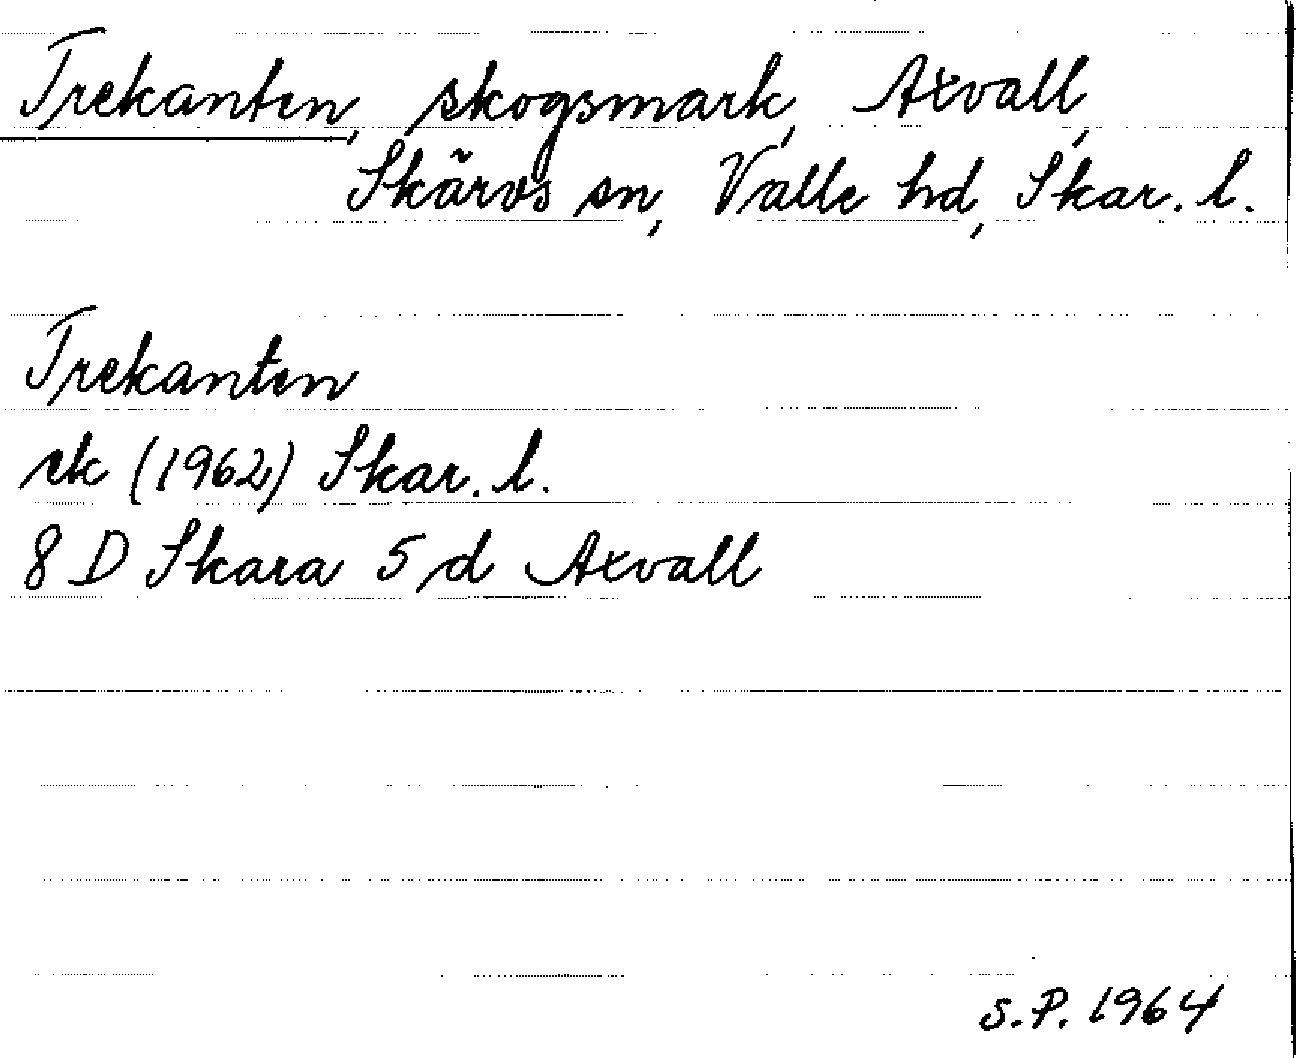 Trekanten, skogsmark, Axvall,
Skärvs sn, Valle hd, Skar. l.
Trekanten
ek (1962) Skar. l.
8 D Skara 5 d Axvall
S.P. 1964